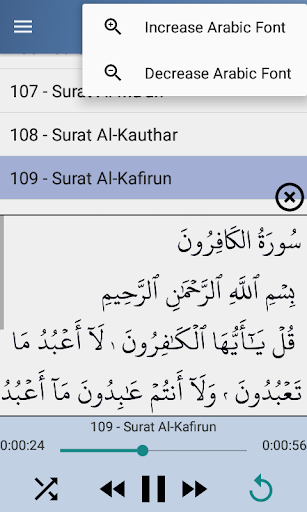 Increase Arabic Font
Decrease Arabic Font
107 - Surat
108 - Surat Al-Kauthar
109 - Surat Al-Kafirun
سُورَةُ الكَافِرُونَ
بِسْمِ ٱللَّهِ ٱلرَّحْمَٰنِ ٱلرَّحِيمِ
قُلْ يَٰٓأَيُّهَا ٱلْكَٰفِرُونَ ۱ لَآ أَعْبُدُ مَا
تَعْبُدُونَ ۲ وَلَآ أَنتُمْ عَٰبِدُونَ مَآ أَعْبُدُ
109 - Surat Al-Kafirun
0:00:24
0:00:56